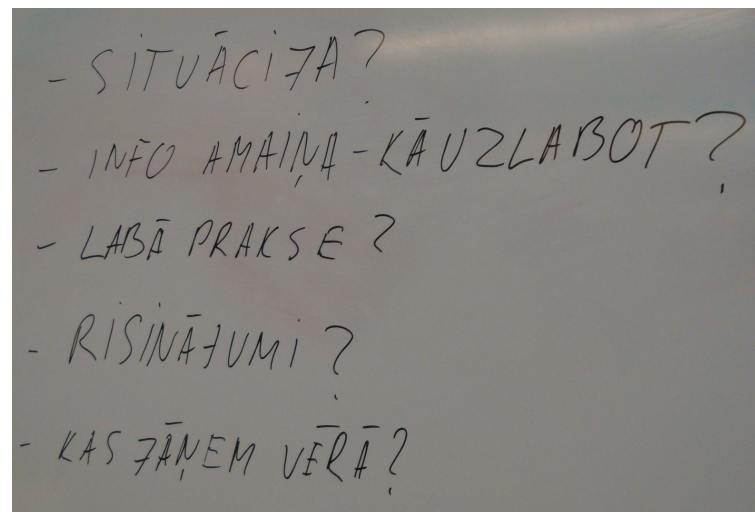 - SITUĀCIJA?
- INFO AMAIŅA - KĀ UZLABOT?
- LABĀ PRAKSE?
- RISINĀJUMI?
- KAS JĀŅEM VĒRĀ?